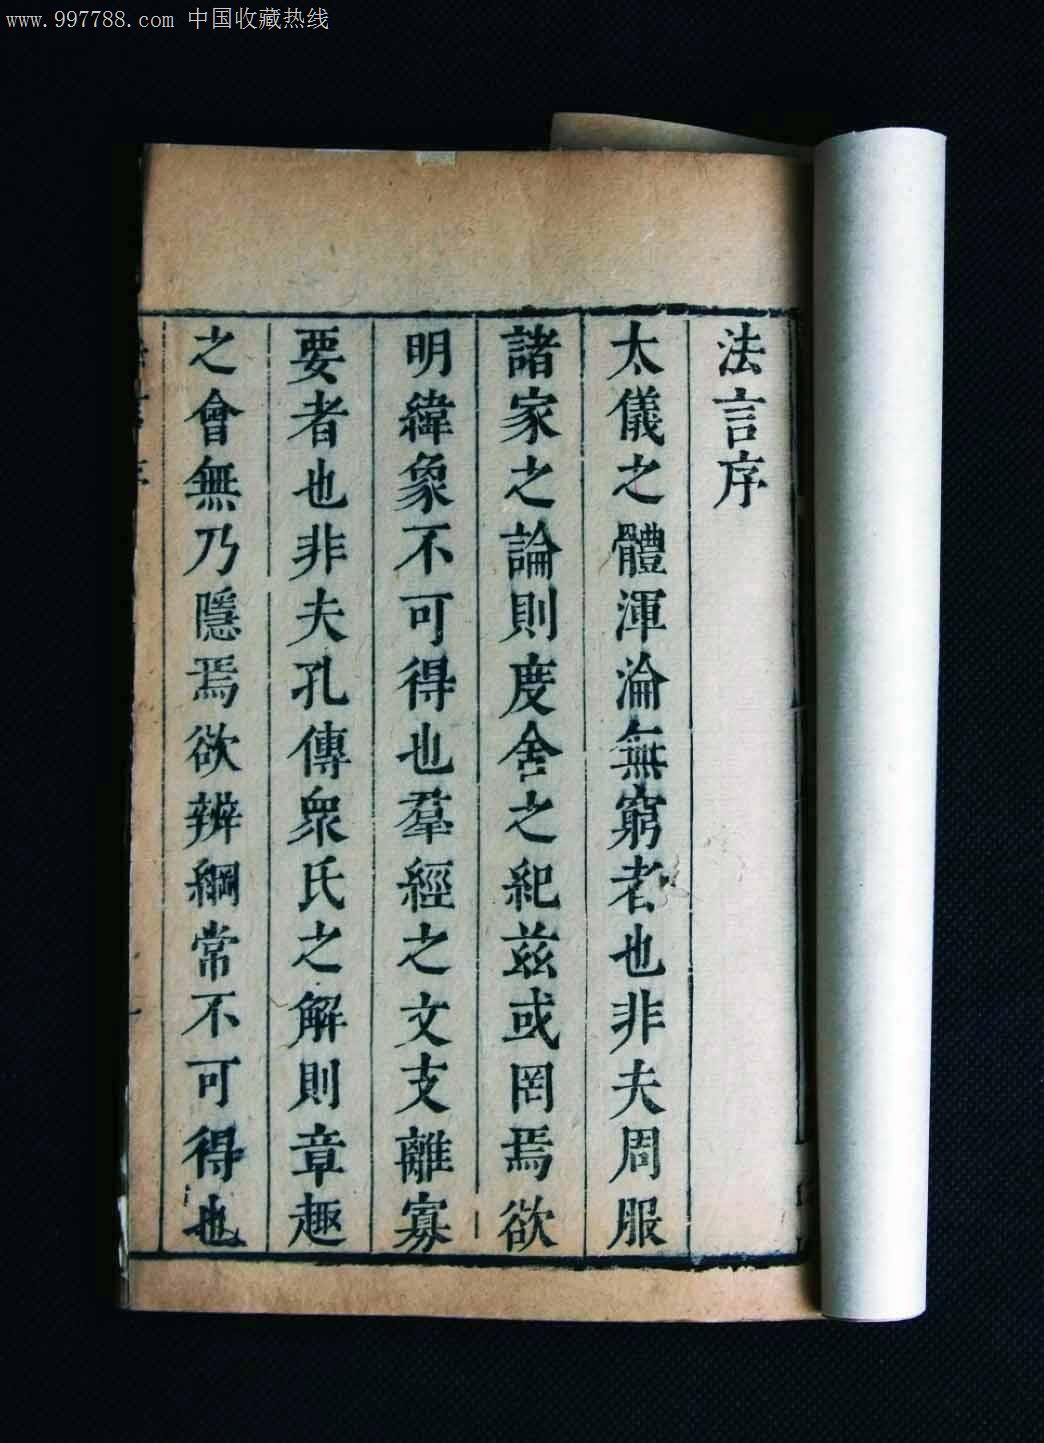 www.997788.com 中国收藏热线
法言序
太儀之體渾淪無窮者也非夫周服
諸家之論則度舍之紀茲或罔焉欲
明緯象不可得也羣經之文支離寡
要者也非夫孔傳衆氏之解則章趣
之會無乃隱焉欲辨綱常不可得也